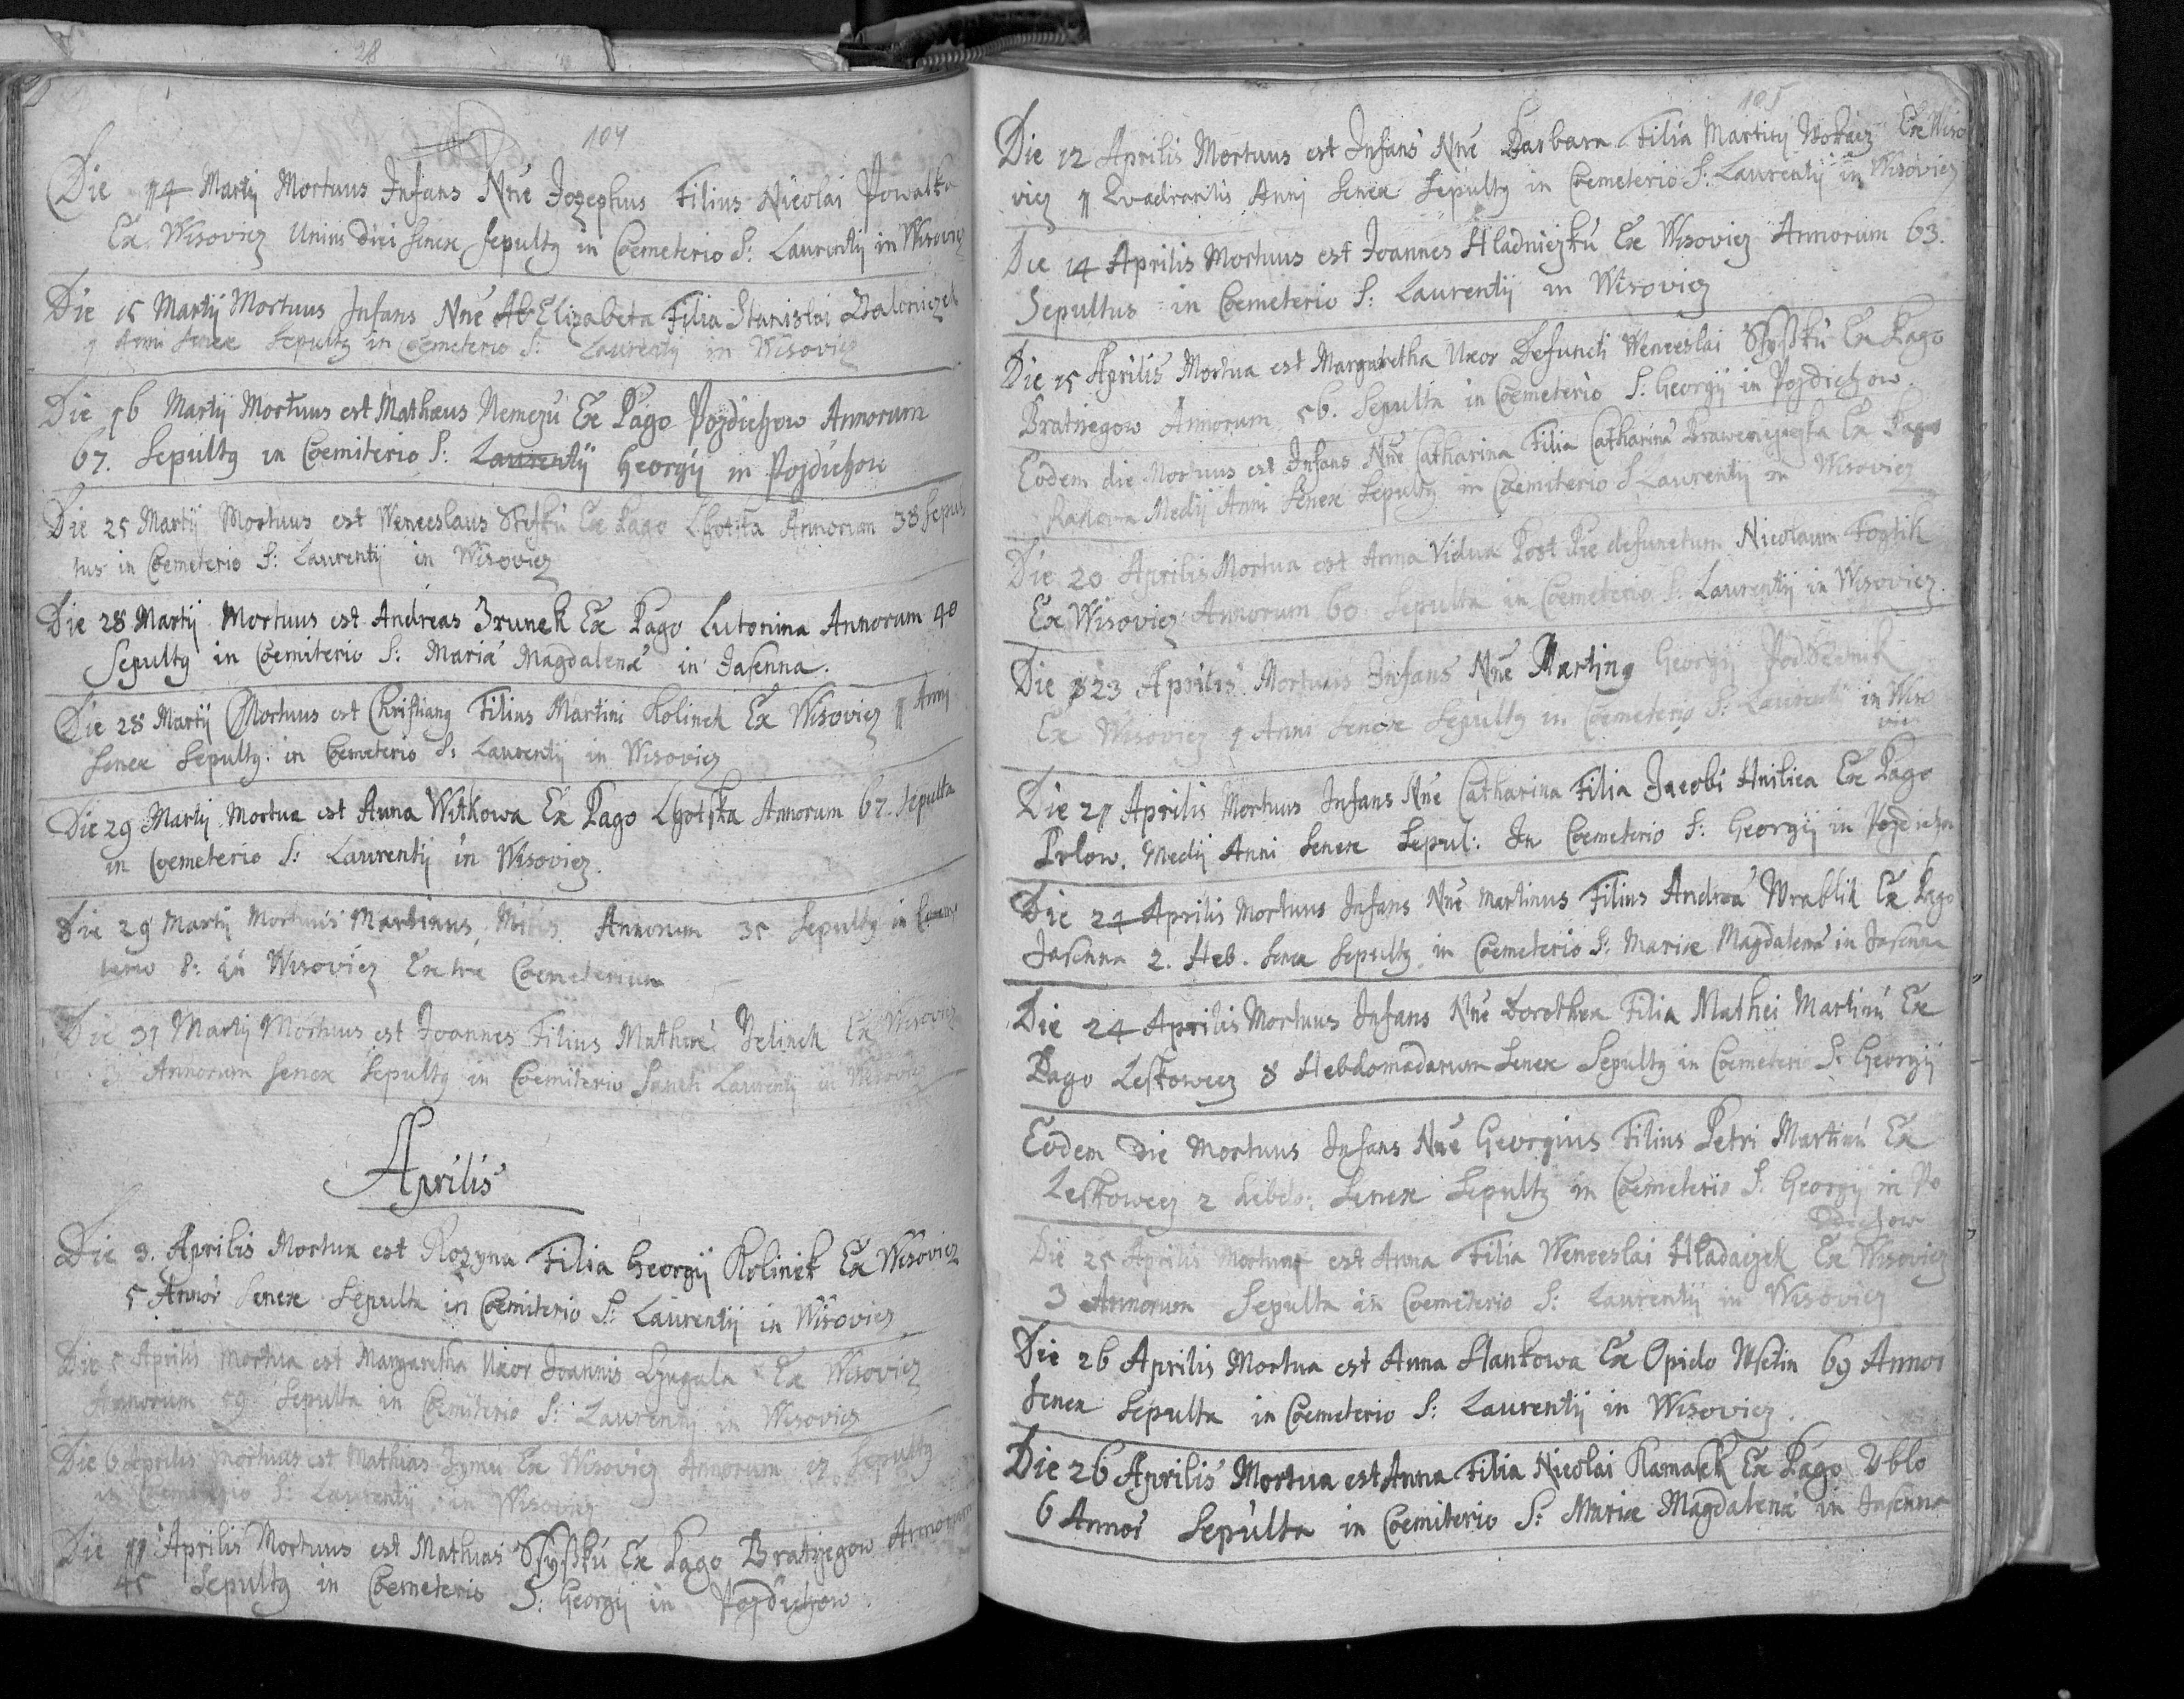 28
104
Die 14 Martij Mortuus Infans Nne Jozephus Filius Nicolai Powalka
Ex Wisovicz Unius Diei Senex Sepultg in Coemeterio S: Laurentij in Wisovicz
Die 15 Martij Mortuus Infans Nne Ab Elizabeta Filia Stanislai
1 Anni Senex Sepultg in Coemeterio S: Laurentij in Wisovicz
Die 16 Martij Mortuus est Mathæus Nemczu Ex Pago Pozdichow Annorum
67. Sepultg in Coemiterio S: Laurentij Georgij in Pozdichow
Die 25 Martij Mortuus est Wenceslaus Ex Pago Lhotska Annorum 38 Sepul
tus in Coemeterio S: Laurentij in Wisovicz
Die 28 Martij Mortuus est Andreas Zrunek Ex Pago Lutonina Annorum 40
Sepultg in Coemiterio S: Mariæ Magdalenæ in Jasenna.
Die 28 Martij Mortuus est Christiang Filius Martini Kolinek Ex Wisovicz 1 Anni
Senex Sepultg in Coemeterio S: Laurentij in Wisovicz
Die 29 Martij Mortua est Anna Witkowa Ex Pago Lhotska Annorum 67. Sepulta
in Coemeterio S: Laurentij in Wisovicz.
Die 29 Martij Mortuus Martinus Annorum 35 Sepultg in Coeme
terio S: in Wisovicz Extra Coemeterium
Die 31 Martij Mortuus est Joannes Filius Mathæi Jelinek Ex Wisovicz
3 Annorum Senex Sepultg in Coemiterio Sancti Laurentij in Wisovicz
Aprilis
Die 3. Aprilis Mortua est Rozyna Filia Georgij Kolinek Ex Wisovicz
5 Annor Senex Sepulta in Coemiterio S: Laurentij in Wisovicz
Die 5 Aprilis Mortua est Margaretha Uxor Joannis Ex Wisovicz
Annorum 59 Sepulta in Coemiterio S: Laurentij in Wisovicz
Die 6 Aprilis Mortuus est Mathias Ex Wisovicz Annorum Sepultg
in Coemiterio S: Laurentij in Wisovicz
Die 11 Aprilis Mortuus est Mathias Ssyßku Ex Pago Bratrzegow Annorum
45 Sepultg in Coemeterio S: Georgij in Pozdichow.
105
Die 12 Aprilis Mortuus est Infans Nne Barbara Filia Martini Ex Wiso
vicz 1 Quadrantis Anni Senex Sepultg in Coemeterio S: Laurentij in Wisovicz
Die 14 Aprilis Mortuus est Joannes Hladniczku Ex Wisovicz Annorum 63.
Sepultus in Coemeterio S: Laurentij in Wisovicz
Die 15 Aprilis Mortua est Margaretha Uxor Defuncti Wenceslai Ssyßku Ex Pago
Bratrzegow Annorum 56. Sepulta in Coemeterio S: Georgij in Pozdichow.
Eodem die Mortuus est Infans Nne Catharina Filia Catharinæ Ex Pago
Medij Anni Senex Sepultg in Coemiterio S Laurentij in Wisovicz
Die 20 Aprilis Mortua est Anna Vidua Post Pie defunctum Nicolaum Fogtik
Ex Wisovicz Annorum 60 Sepulta in Coemeterio S: Laurentij in Wisovicz.
Die 23 Aprilis Mortuus Infans Nne Marting Georgij
Ex Wisovicz 1 Anni Senex Sepultg in Coemeterio S: Laurentij in Wiso
vicz
Die 21 Aprilis Mortuus Infans Nne Catharina Filia Jacobi Hnilica Ex Pago
Prlow. Medij Anni Senex Sepul: In Coemeterio S: Georgij in Pozdichow
Die 24 Aprilis Mortuus Infans Nne Martinus Filius Andreæ Wrablik Ex Pago
Jasenna 2. Heb. Senex Sepultg in Coemeterio S: Mariæ Magdalenæ in Jasenna
Die 24 Aprilis Mortuus Infans Nne Dorothea Filia Mathei Martinu Ex
Pago Leskowecz 8 Hebdomadarum Senex Sepultg in Coemeterio S: Georgij
Eodem Die Mortuus Infans Nne Georgius Filius Petri Martinu Ex
Leskowecz 2 hebdo: Senex Sepultg in Coemeterio S: Georgij in Po
zdichow
Die 25 Aprilis Mortuus est Anna Filia Wenceslai Hladaczek Ex Wisovicz
3 Annorum Sepulta in Coemeterio S: Laurentij in Wisovicz
Die 26 Aprilis Mortua est Anna Hankowa Ex Opido Wsetin 69 Annor
Senex Sepulta in Coemeterio S: Laurentij in Wisovicz.
Die 26 Aprilis Mortua est Anna Filia Nicolai Ramassk Ex Pago Ublo
6 Annor Sepulta in Coemiterio S: Mariæ Magdalenæ in Jasenna